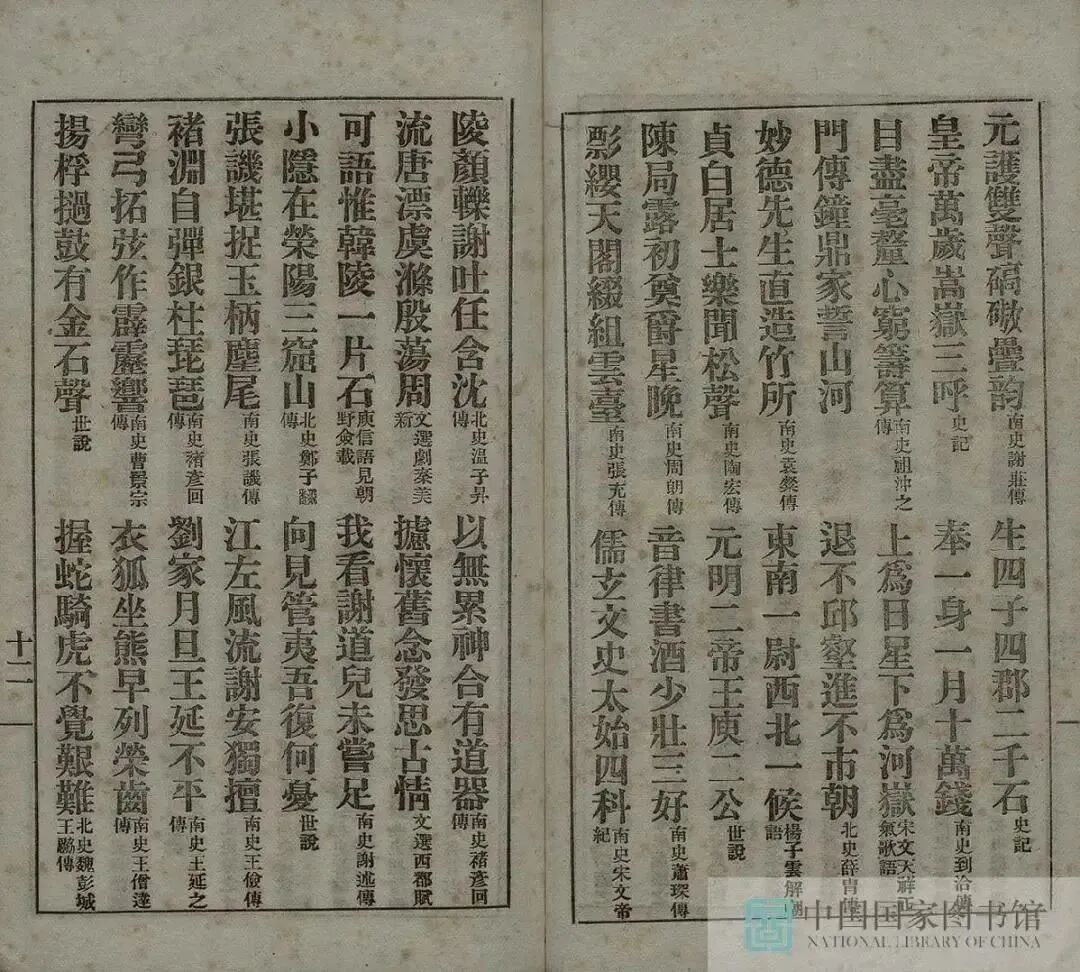 元護雙聲碻磝疊韵南史謝莊傳 生四子四郡二千石史記
皇帝萬歲嵩嶽三呼史記 奉一身一月十萬錢南史到洽傳
目盡毫釐心窮籌算南史祖沖之傳 上爲日星下爲河嶽宋文天祥正氣歌語
門傳鐘鼎家誓山河 退不邱壑進不市朝北史薛冑傳
妙德先生直造竹所南史袁粲傳 東南一尉西北一候楊子雲解嘲語
貞白居士樂聞松聲南史陶宏傳 元明二帝王庾二公世說
陳局露初奠爵星晚南史周朗傳 音律書酒少壯三好南史蕭琛傳
影纓天閣綴組雲臺南史張充傳 儒玄文史太始四科南史宋文帝紀
陵顏轢謝吐任含沈北史溫子昇傳 以無累神合有道器南史褚彥回傳
流唐漂虞滌殷蕩周文選劇秦美新 攄懷舊念發思古情文選西都賦
可語惟韓陵一片石庾信語見朝野僉載 我看謝道兒未嘗足南史謝述傳
小隱在滎陽三窟山北史鄭子翻傳 向見管夷吾復何憂世說
張譏堪捉玉柄麈尾南史張譏傳 江左風流謝安獨擅南史王儉傳
褚淵自彈銀柱琵琶南史褚彥回傳 劉家月旦王延不平南史王延之傳
彎弓拓弦作霹靂響南史曹景宗傳 衣狐坐熊早列榮齒南史王僧達傳
揚桴撾鼓有金石聲世說 握蛇騎虎不覺艱難北史魏彭城王勰傳
十二
中国国家图书馆
NATIONAL LIBRARY OF CHINA